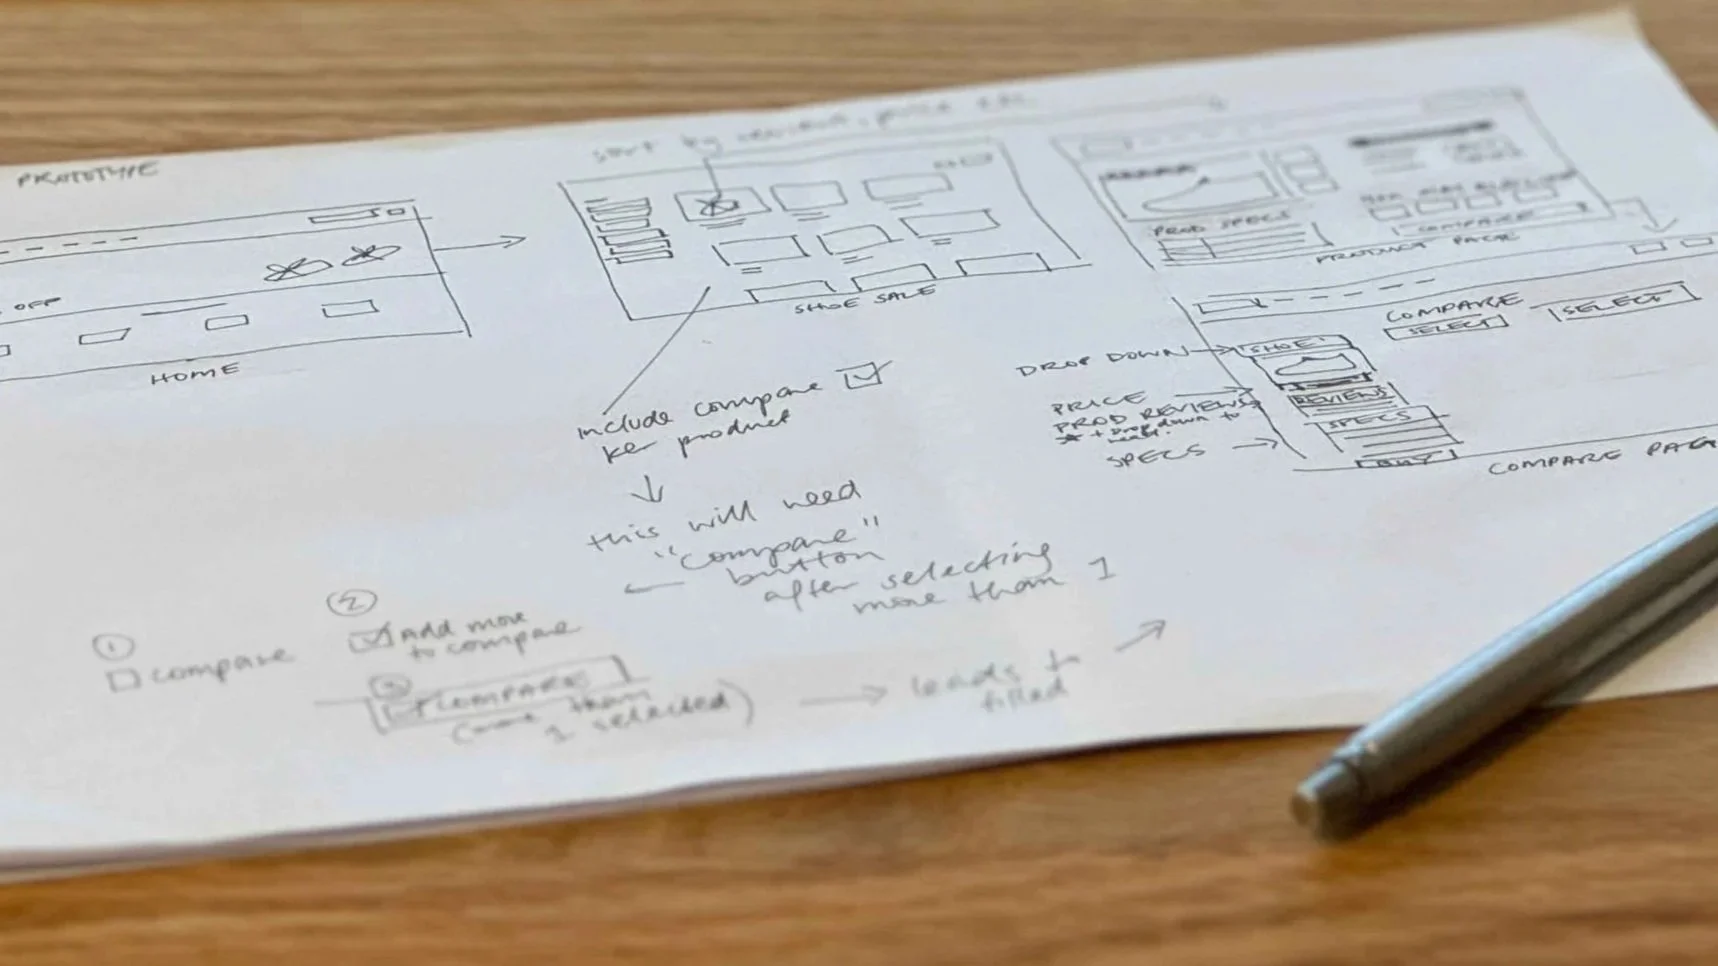 PROTOTYPE
OFF
HOME
sort by reviews, price
SHOE SALE
include compare
per product
this will need
"Compare"
button
after selecting
more than 1
PROD SPECS
COMPARE
PRODUCT PAGE
COMPARE
SELECT
SELECT
DROP DOWN
SHOE 1
PRICE
PROD REVIEWS
+ Drop down to
REVIEWS
SPECS
SPECS
BUY
COMPARE PAGE
1
compare
2
Add more
to compare
3
COMPARE
(more than
1 selected)
leads to
filled